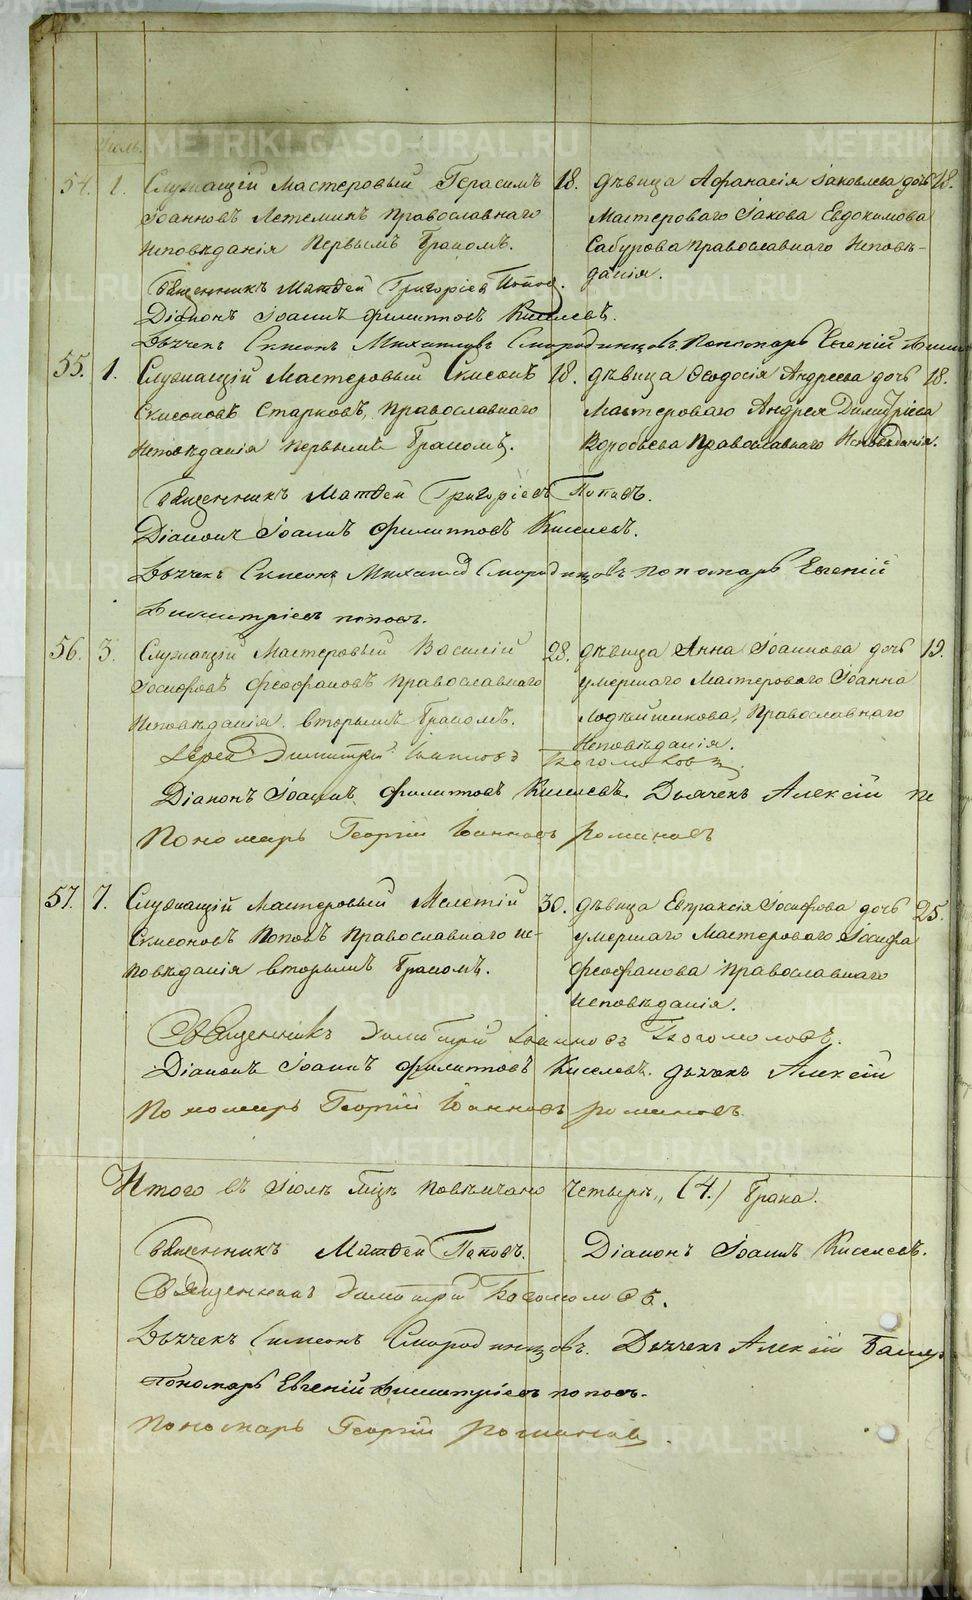 METRIKI.GASO-URAL.RU
Іюль.
54. 1. Служащій Мастеровый Герасимъ 18. дѣвица Афанасія Іаковлева дочь 18.
Іоанновъ Летеминъ Православнаго Мастероваго Іакова Евдокимова
Исповѣданія Первымъ Бракомъ. Сабурова Православнаго Исповѣ-
данія.
Священникъ Матѳей Григоріевъ Поповъ.
Діаконъ Іоаннъ Филипповъ Киселевъ.
Дьячекъ Симеонъ Михаиловъ Смородинцовъ Пономарь Евгеній
55. 1. Служащій Мастеровый Симеонъ 18. дѣвица Ѳеодосія Андреева дочь 18.
Симеоновъ Старковъ, Православнаго Мастероваго Андрея Димитріева
Исповѣданія Первымъ Бракомъ. Воробьева Православнаго Исповѣданія.
Священникъ Матѳей Григоріевъ Поповъ.
Діаконъ Іоаннъ Филипповъ Киселевъ.
Дьячекъ Симеонъ Михаилов Смородинцовъ Пономарь Евгеній
Димитріевъ поповъ.
56. 3. Служащій Мастеровый Василій 28. дѣвица Анна Іоаннова дочь 19.
Іосифовъ Феофановъ Православнаго умершаго Мастероваго Іоанна
Исповѣданія, вторымъ Бракомъ. Лодѣйщикова, Православнаго
Исповѣданія.
Іерей Димитрій Іванновъ Богомоловъ.
Діаконъ Іоаннъ Филипповъ Киселевъ. Дьячекъ Алексій
Пономарь Георгій Іоанновъ Романовъ
57. 7. Служащій Мастеровый Мелетій 30. дѣвица Евпраксія Іосифова дочь 25.
Симеоновъ Поповъ Православнаго ис- умершаго Мастероваго Іосифа
повѣданія вторымъ Бракомъ. Феофанова Православнаго
исповѣданія.
Священникъ Димитрій Іванновъ Богомоловъ.
Діаконъ Іоаннъ Филипповъ Киселевъ. дьячекъ Алексій
Пономарь Георгій Іоанновъ романовъ
Итого въ Іюлѣ Мцѣ повѣнчано четыре (4.) брака.
Священникъ Матѳей Поповъ. Діаконъ Іоаннъ Киселевъ.
Священникъ Димитрій Богомоловъ.
Дьячекъ Симеонъ Смородинцовъ. Дьячекъ Алексій
Пономарь Евгеній Димитріевъ поповъ.
Пономарь Георгій Романовъ.